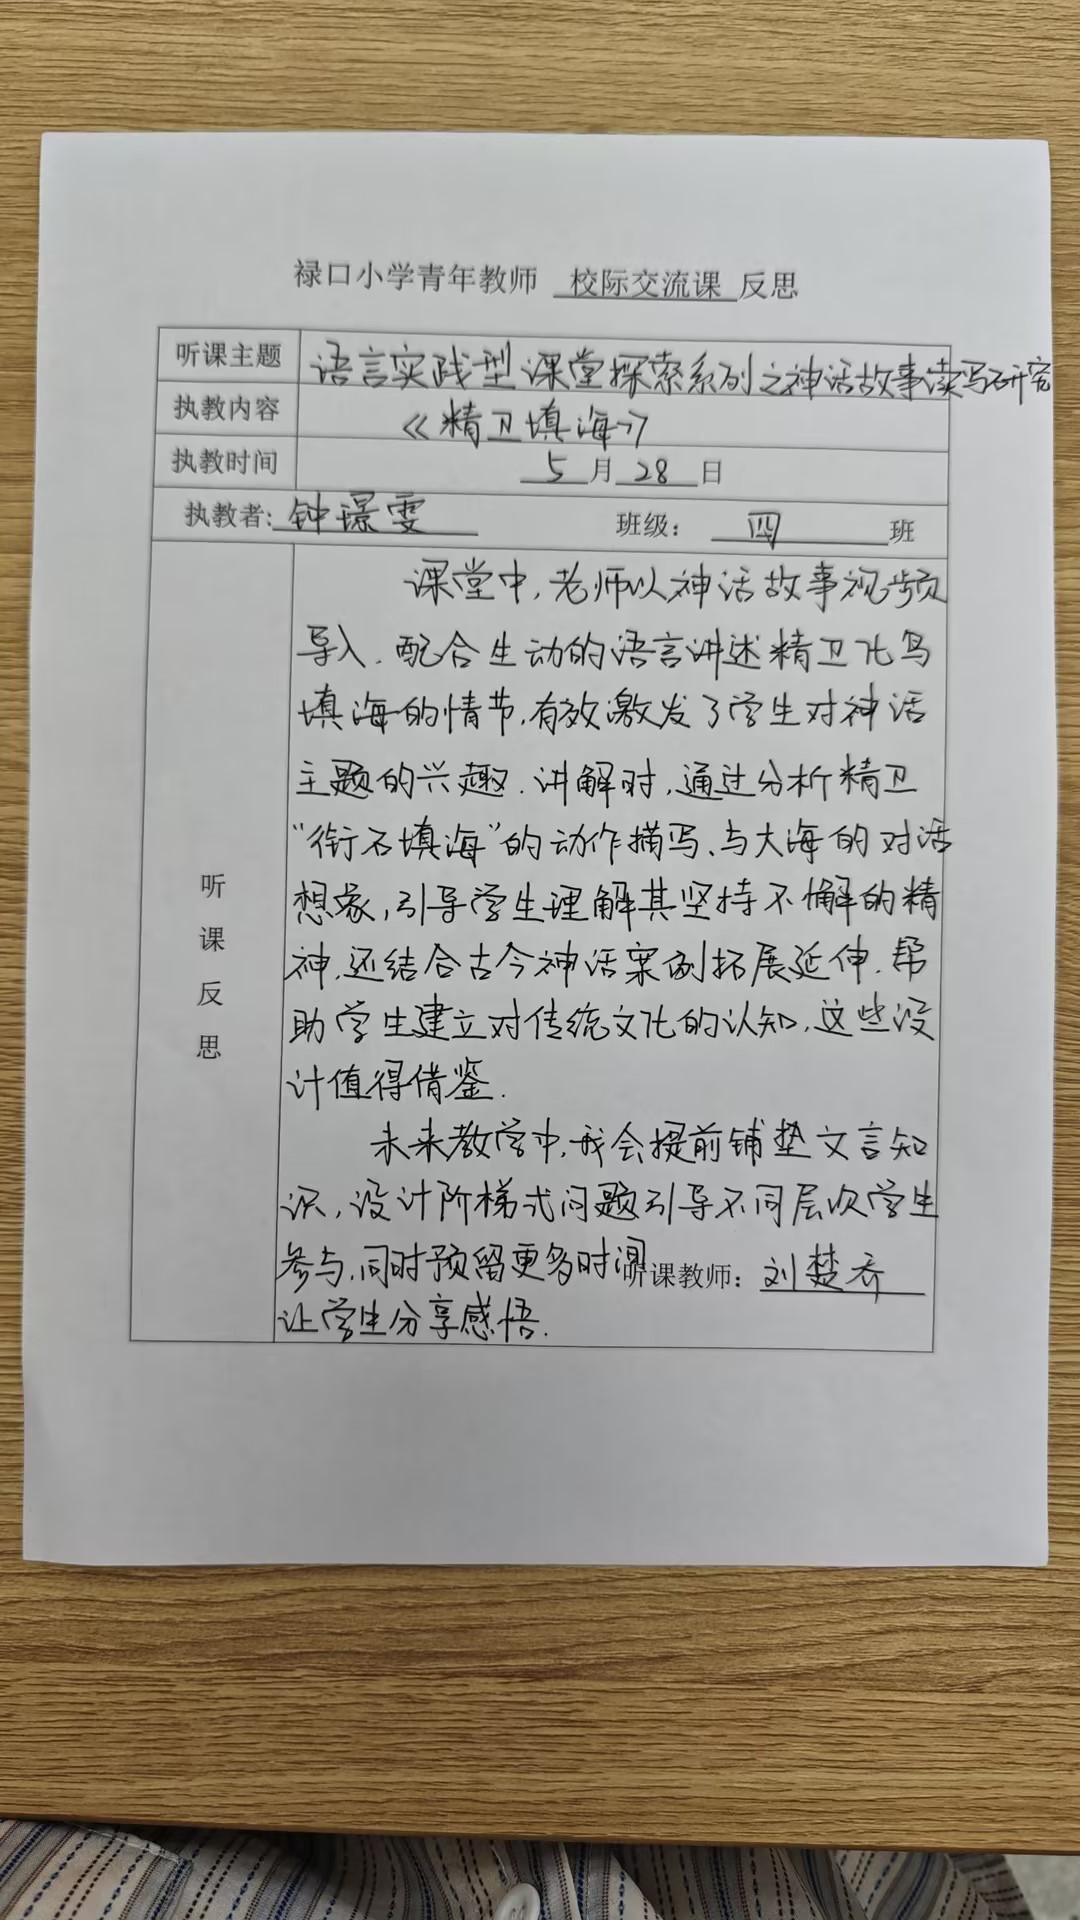 禄口小学青年教师 校际交流课 反思
听课主题 语言实践型课堂探索系列之神话故事读写研究
执教内容 《精卫填海》
执教时间 5月28日
执教者:钟璟雯 班级: 四 班
听课反思
课堂中,老师以神话故事视频
导入,配合生动的语言讲述精卫化鸟
填海的情节,有效激发了学生对神话
主题的兴趣.讲解时,通过分析精卫
“衔石填海”的动作描写、与大海的对话
想象,引导学生理解其坚持不懈的精
神,还结合古今神话案例拓展延伸,帮
助学生建立对传统文化的认知,这些设
计值得借鉴.
未来教学中,我会提前铺垫文言知
识,设计阶梯式问题引导不同层次学生
参与,同时预留更多时间
让学生分享感悟.
听课教师: 刘楚乔